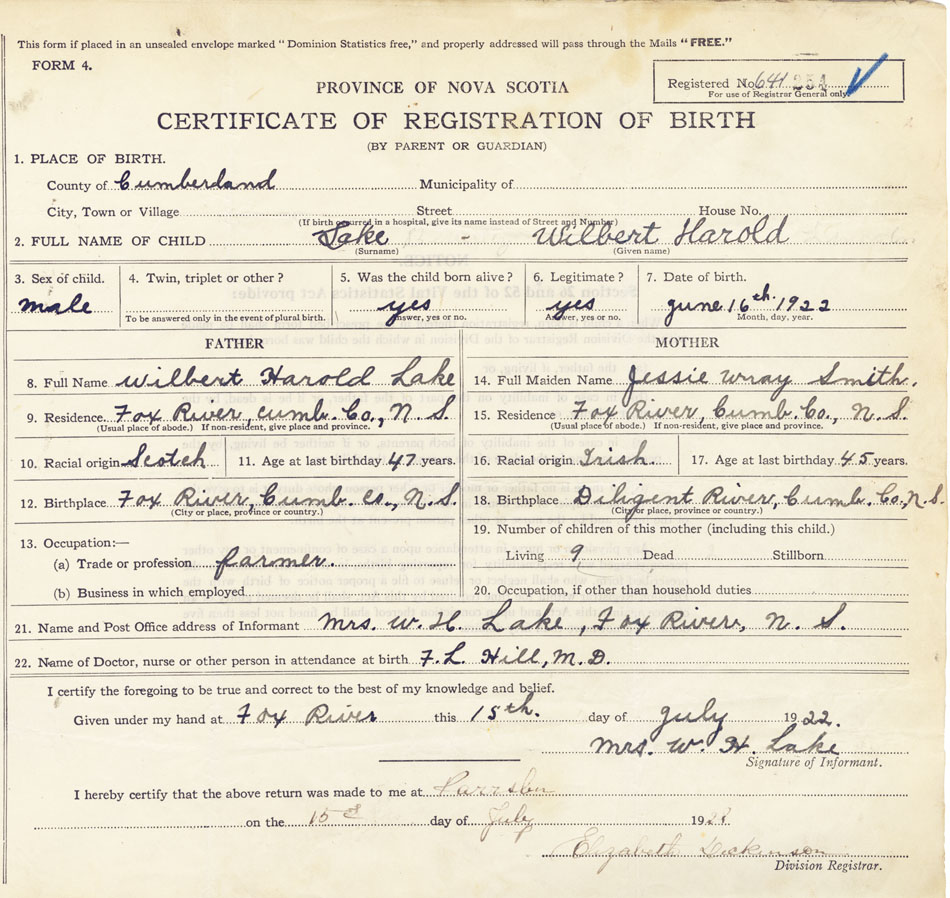 This form if placed in an unsealed envelope marked "Dominion Statistics free," and properly addressed will pass through the Mails "FREE."
FORM 4.
Registered No. 641 254
For use of Registrar General only.
PROVINCE OF NOVA SCOTIA
CERTIFICATE OF REGISTRATION OF BIRTH
(BY PARENT OR GUARDIAN)
1. PLACE OF BIRTH.
County of Cumberland Municipality of
City, Town or Village Street House No.
(If birth occurred in a hospital, give its name instead of Street and Number)
2. FULL NAME OF CHILD Lake - Wilbert Harold
(Surname) (Given name)
3. Sex of child. 4. Twin, triplet or other? 5. Was the child born alive? 6. Legitimate? 7. Date of birth.
male yes yes June 16th 1922
To be answered only in the event of plural birth. Answer, yes or no. Answer, yes or no. Month, day, year.
FATHER MOTHER
8. Full Name Wilbert Harold Lake 14. Full Maiden Name Jessie Wray Smith.
9. Residence Fox River, Cumb. Co., N. S. 15. Residence Fox River, Cumb. Co., N. S.
(Usual place of abode.) If non-resident, give place and province. (Usual place of abode.) If non-resident, give place and province.
10. Racial origin Scotch 11. Age at last birthday 47 years. 16. Racial origin Irish. 17. Age at last birthday 45 years.
12. Birthplace Fox River, Cumb. Co., N. S. 18. Birthplace Diligent River, Cumb. Co., N. S.
(City or place, province or country.) (City or place, province or country.)
13. Occupation:— 19. Number of children of this mother (including this child.)
(a) Trade or profession farmer. Living 9 Dead Stillborn
(b) Business in which employed 20. Occupation, if other than household duties
21. Name and Post Office address of Informant Mrs. W. H. Lake, Fox River, N. S.
22. Name of Doctor, nurse or other person in attendance at birth F. L. Hill, M. D.
I certify the foregoing to be true and correct to the best of my knowledge and belief.
Given under my hand at Fox River this 15th. day of July 1922.
Mrs. W. H. Lake
Signature of Informant.
I hereby certify that the above return was made to me at
on the 15 day of July 19
Elizabeth Dickinson
Division Registrar.